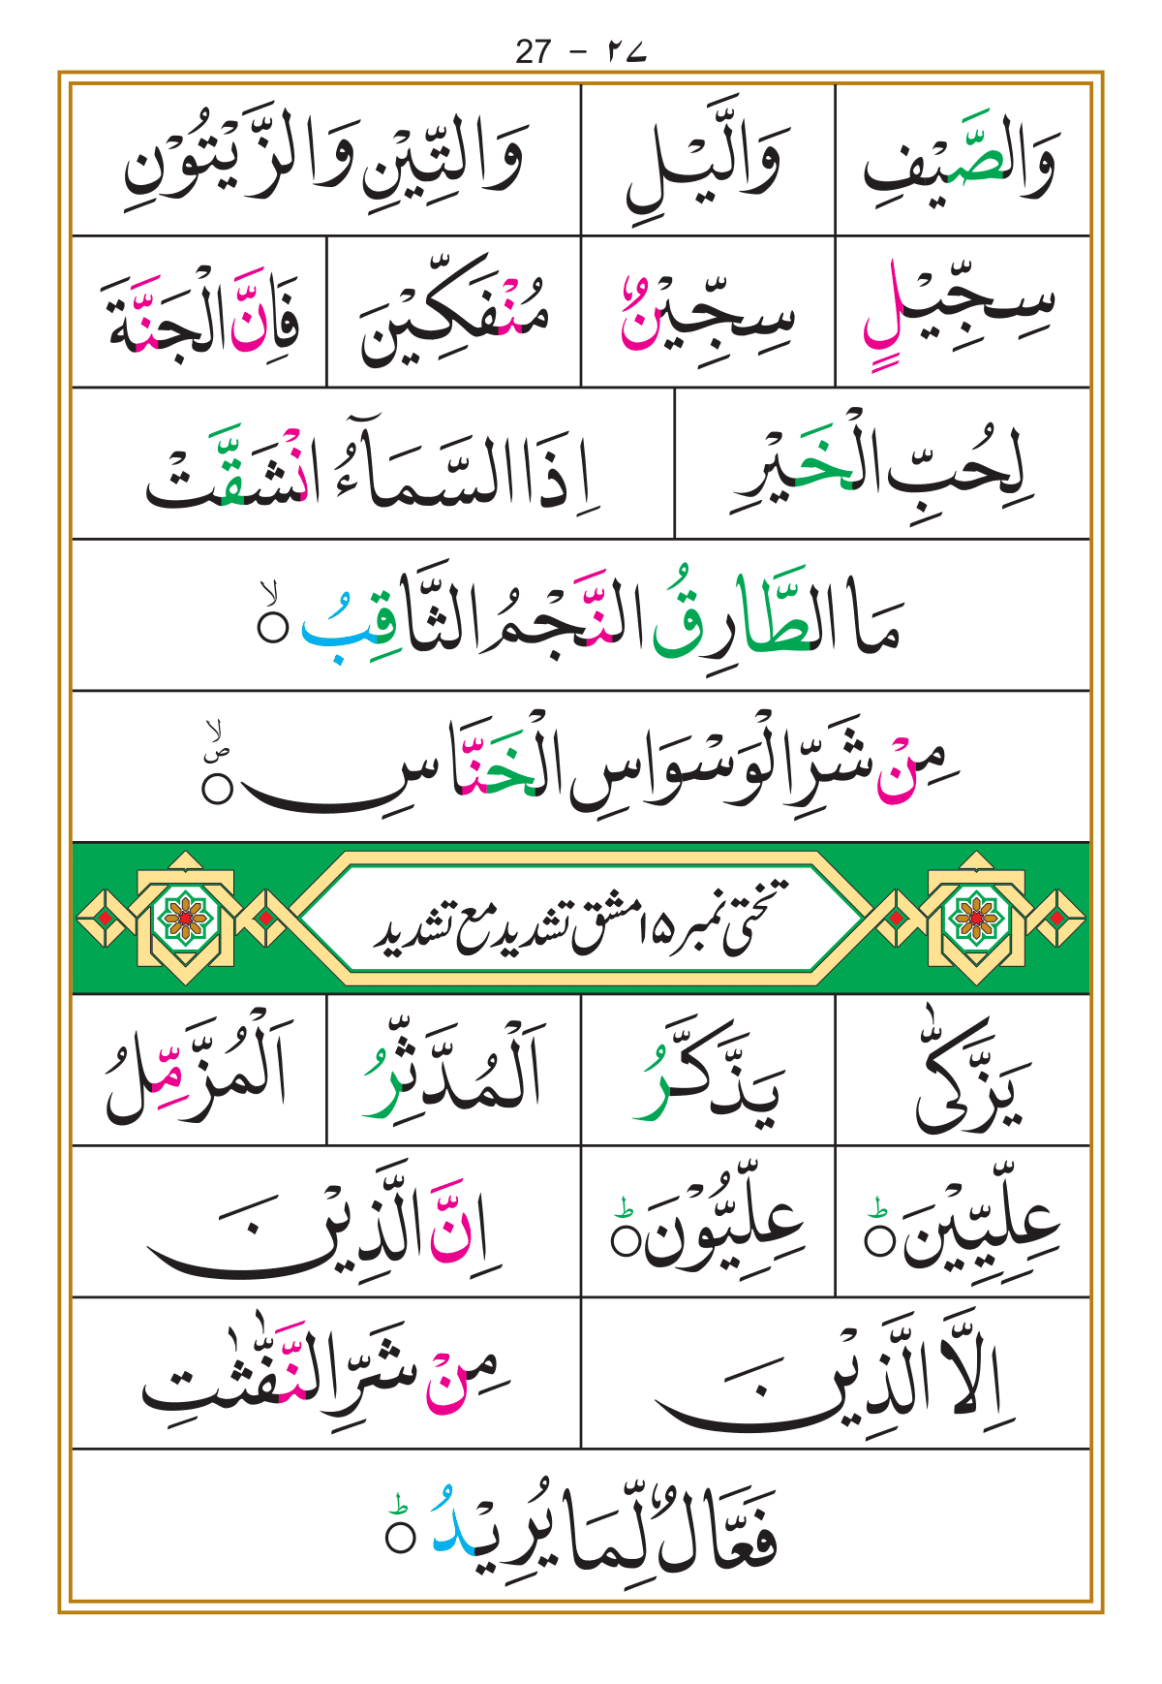 27 – ۲۷
وَالصَّيْفِ وَالَّيْلِ وَالتِّيْنِ وَالزَّيْتُوْنِ
سِجِّيْلٍ سِجِّيْنٌ مُنْفَكِّيْنَ فَاِنَّ الْجَنَّةَ
لِحُبِّ الْخَيْرِ اِذَا السَّمَآءُ انْشَقَّتْ
مَا الطَّارِقُ النَّجْمُ الثَّاقِبُ ۙ○
مِنْ شَرِّ الْوَسْوَاسِ الْخَنَّاسِ ۙ۬ص○
تختی نمبر ۱۵ مشق تشدید مع تشدید
يَزَّكّٰى يَذَّكَّرُ اَلْمُدَّثِّرُ اَلْمُزَّمِّلُ
عِلِّيِّيْنَ ○ؕ عِلِّيُّوْنَ ○ؕ اِنَّ الَّذِيْنَ
اِلَّا الَّذِيْنَ مِنْ شَرِّ النَّفّٰثٰتِ
فَعَّالٌ لِّمَا يُرِيْدُ ○ؕ